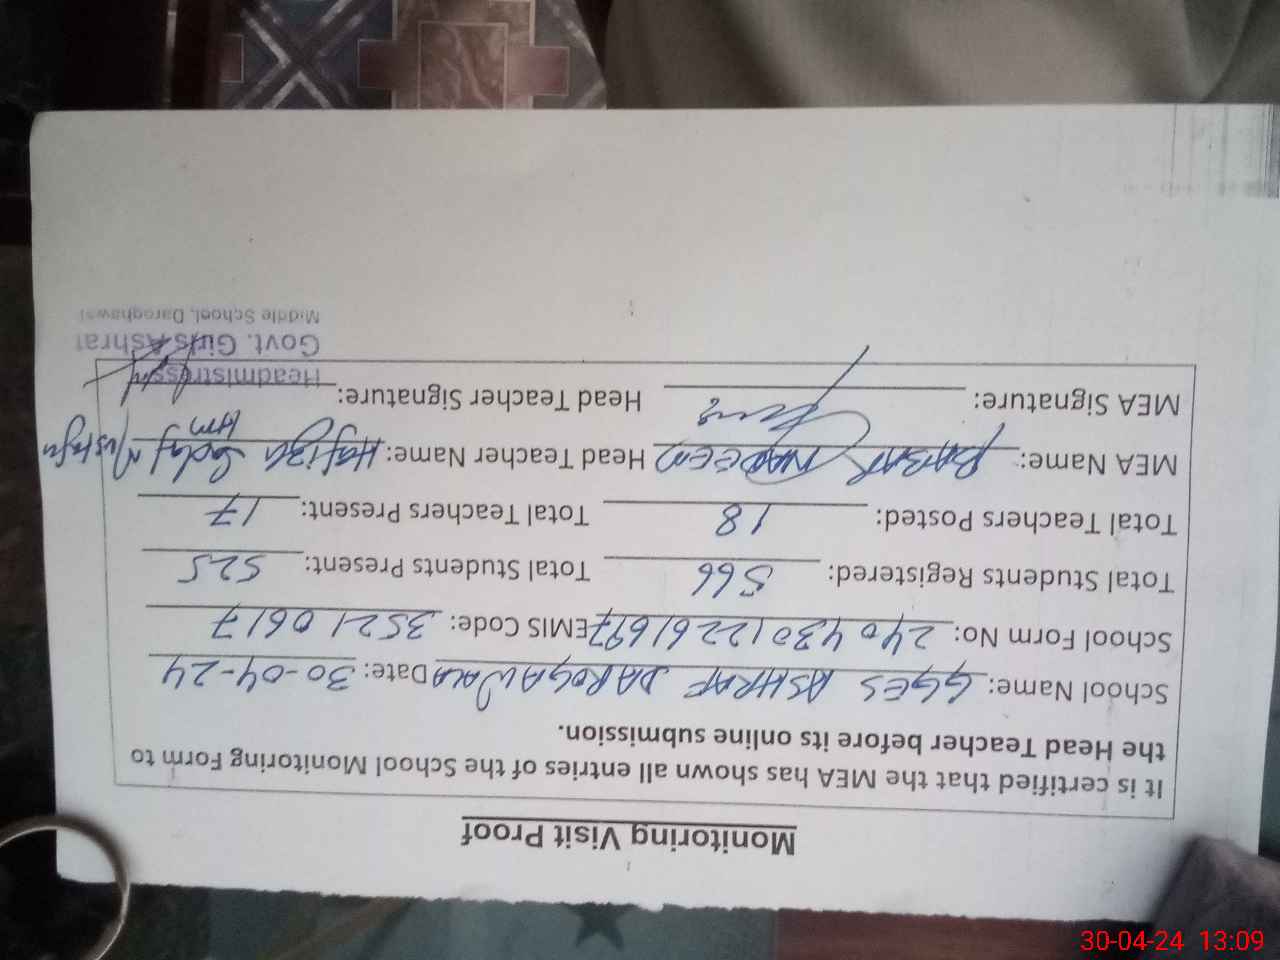 Monitoring Visit Proof
It is certified that the MEA has shown all entries of the School Monitoring Form to
the Head Teacher before its online submission.
School Name: GGES ASHRAF DAROGAWALA Date: 30-04-24
School Form No: 24043012261697 EMIS Code: 35210617
Total Students Registered: 566 Total Students Present: 525
Total Teachers Posted: 18 Total Teachers Present: 17
MEA Name: BABAR NADEEM Head Teacher Name: Hafiza Mustafa
HM
MEA Signature: Head Teacher Signature:
Headmistress
Govt. Girls Ashraf
Middle School, Daroghawal
30-04-24 13:09